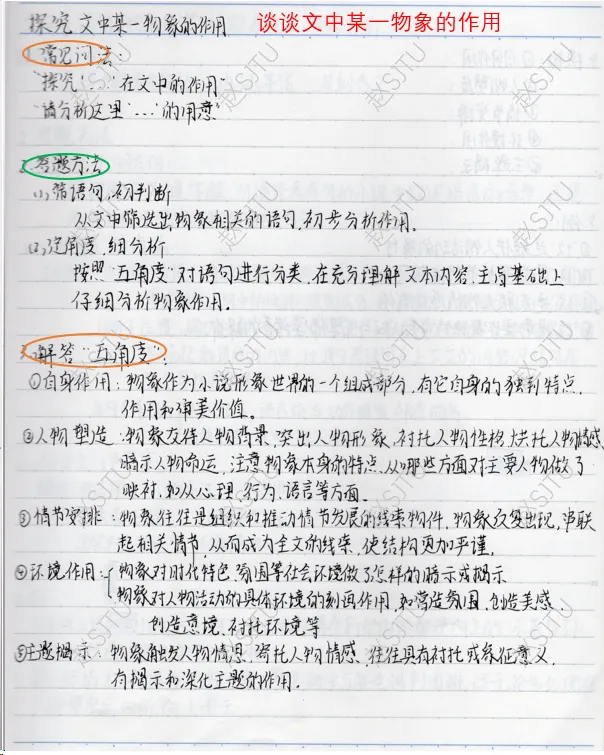 探究文中某一物象的作用
谈谈文中某一物象的作用
1.常见问法:
"探究'…'在文中的作用"
"请分析这里'…'的用意"
2.答题方法
(1)筛语句,初判断
从文中筛选出物象相关的语句,初步分析作用。
(2)定角度,细分析
按照"五角度"对语句进行分类,在充分理解文本内容、主旨基础上
仔细分析物象作用.
3.解答"五角度":
①自身作用:物象作为小说形象世界的一个组成部分,有它自身的独到特点,
作用和审美价值。
②人物塑造:物象交待人物背景,突出人物形象,衬托人物性格,烘托人物情感,
暗示人物命运,注意物象本身的特点,从哪些方面对主要人物做了
映衬,如从心理、行为、语言等方面。
③情节安排:物象往往是组织和推动情节发展的线索物件,物象反复出现,串联
起相关情节,从而成为全文的线索,使结构更加严谨,
④环境作用:物象对时代特色、氛围等社会环境做了怎样的暗示或揭示
物象对人物活动的具体环境的刻画作用,如营造氛围、创造美感、
创造意境、衬托环境等
⑤主题揭示:物象触发人物情思、寄托人物情感、往往具有衬托或象征意义,
有揭示和深化主题的作用.
赵SJTU
赵SJTU
赵SJTU
赵SJTU
赵SJTU
赵SJTU
赵SJTU
赵SJTU